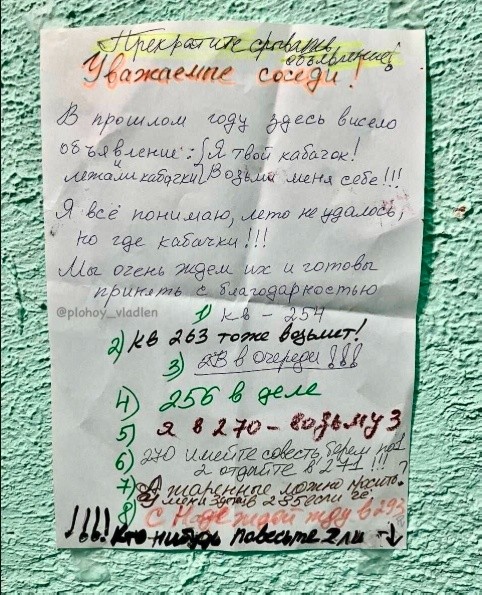 Прекратите срывать
объявление!
Уважаемые соседи!
В прошлом году здесь висело
объявление: Я твой кабачок!
и
лежали кабачки Возьми меня себе!!!
Я всё понимаю, лето не удалось,
но где кабачки!!!
Мы очень ждем их и готовы
принять с благодарностью
@plohoy_vladlen
1) кв - 254
2) кв 263 тоже возьмет!
3) 2В в очереди!!!
4) 256 в деле
5) Я в 270 - возьму 3
6) 270 имейте совесть берем по 1
2 отдайте в 271!!!
7) А жаренные можно носить?
У меня в 235 если чё
8 С Надеждой жду в 293
!!!! Кто нибудь повесьте 2 ли